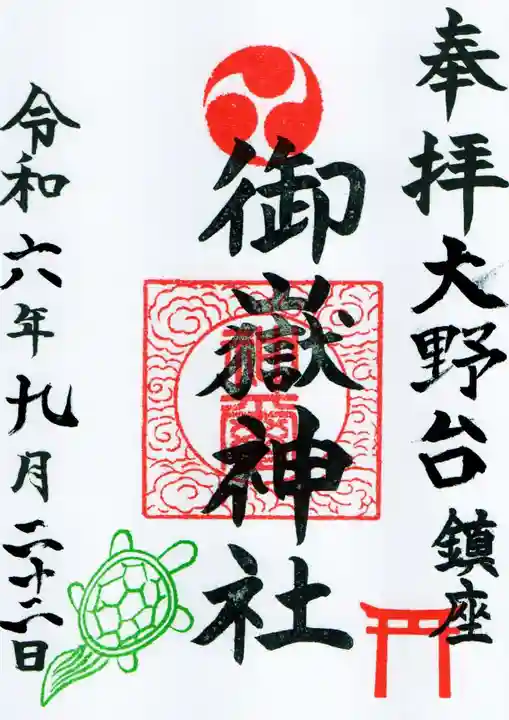 奉拝大野台鎮座
御嶽神社
令和六年九月二十二日